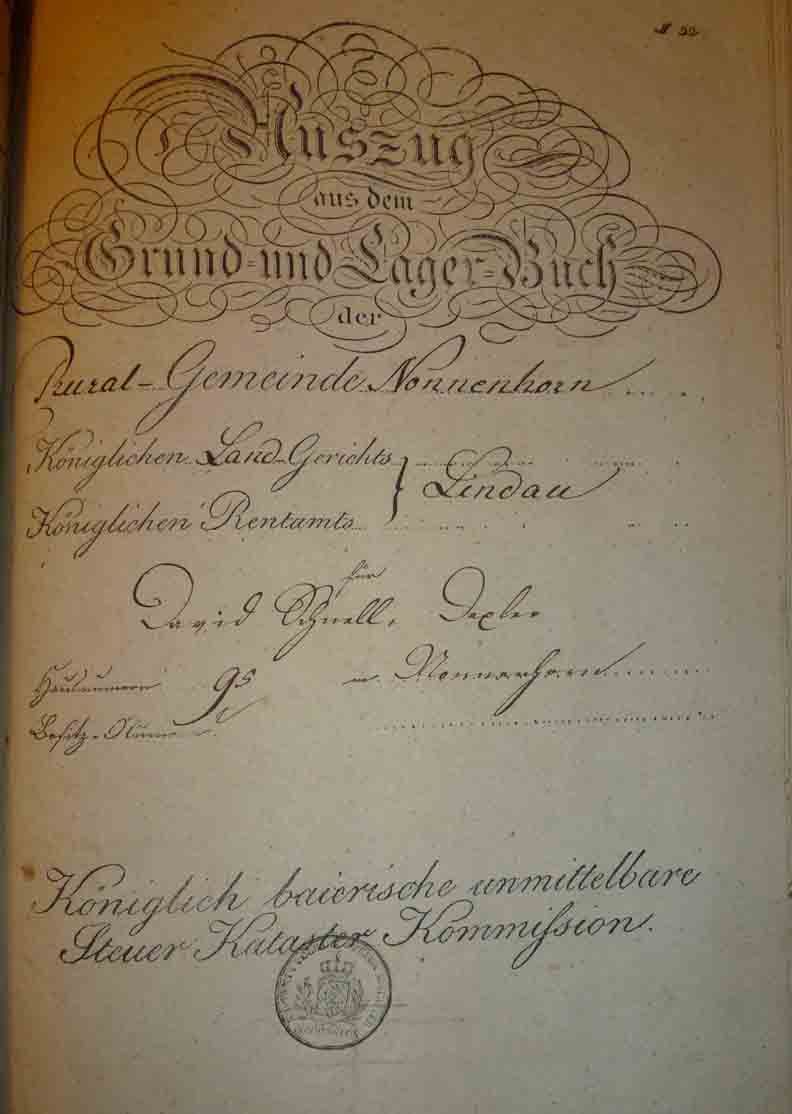 22
Auszug
aus dem
Grund- und Lager-Buch
der
Rural-Gemeinde Nonnenhorn
Königlichen Land-Gerichts } Lindau
Königlichen Rentamts
für
David Schnell,
Hausnumero 95 in Nonnenhorn
Besitz-
Königlich baierische unmittelbare
Steuer Kataster Kommission.